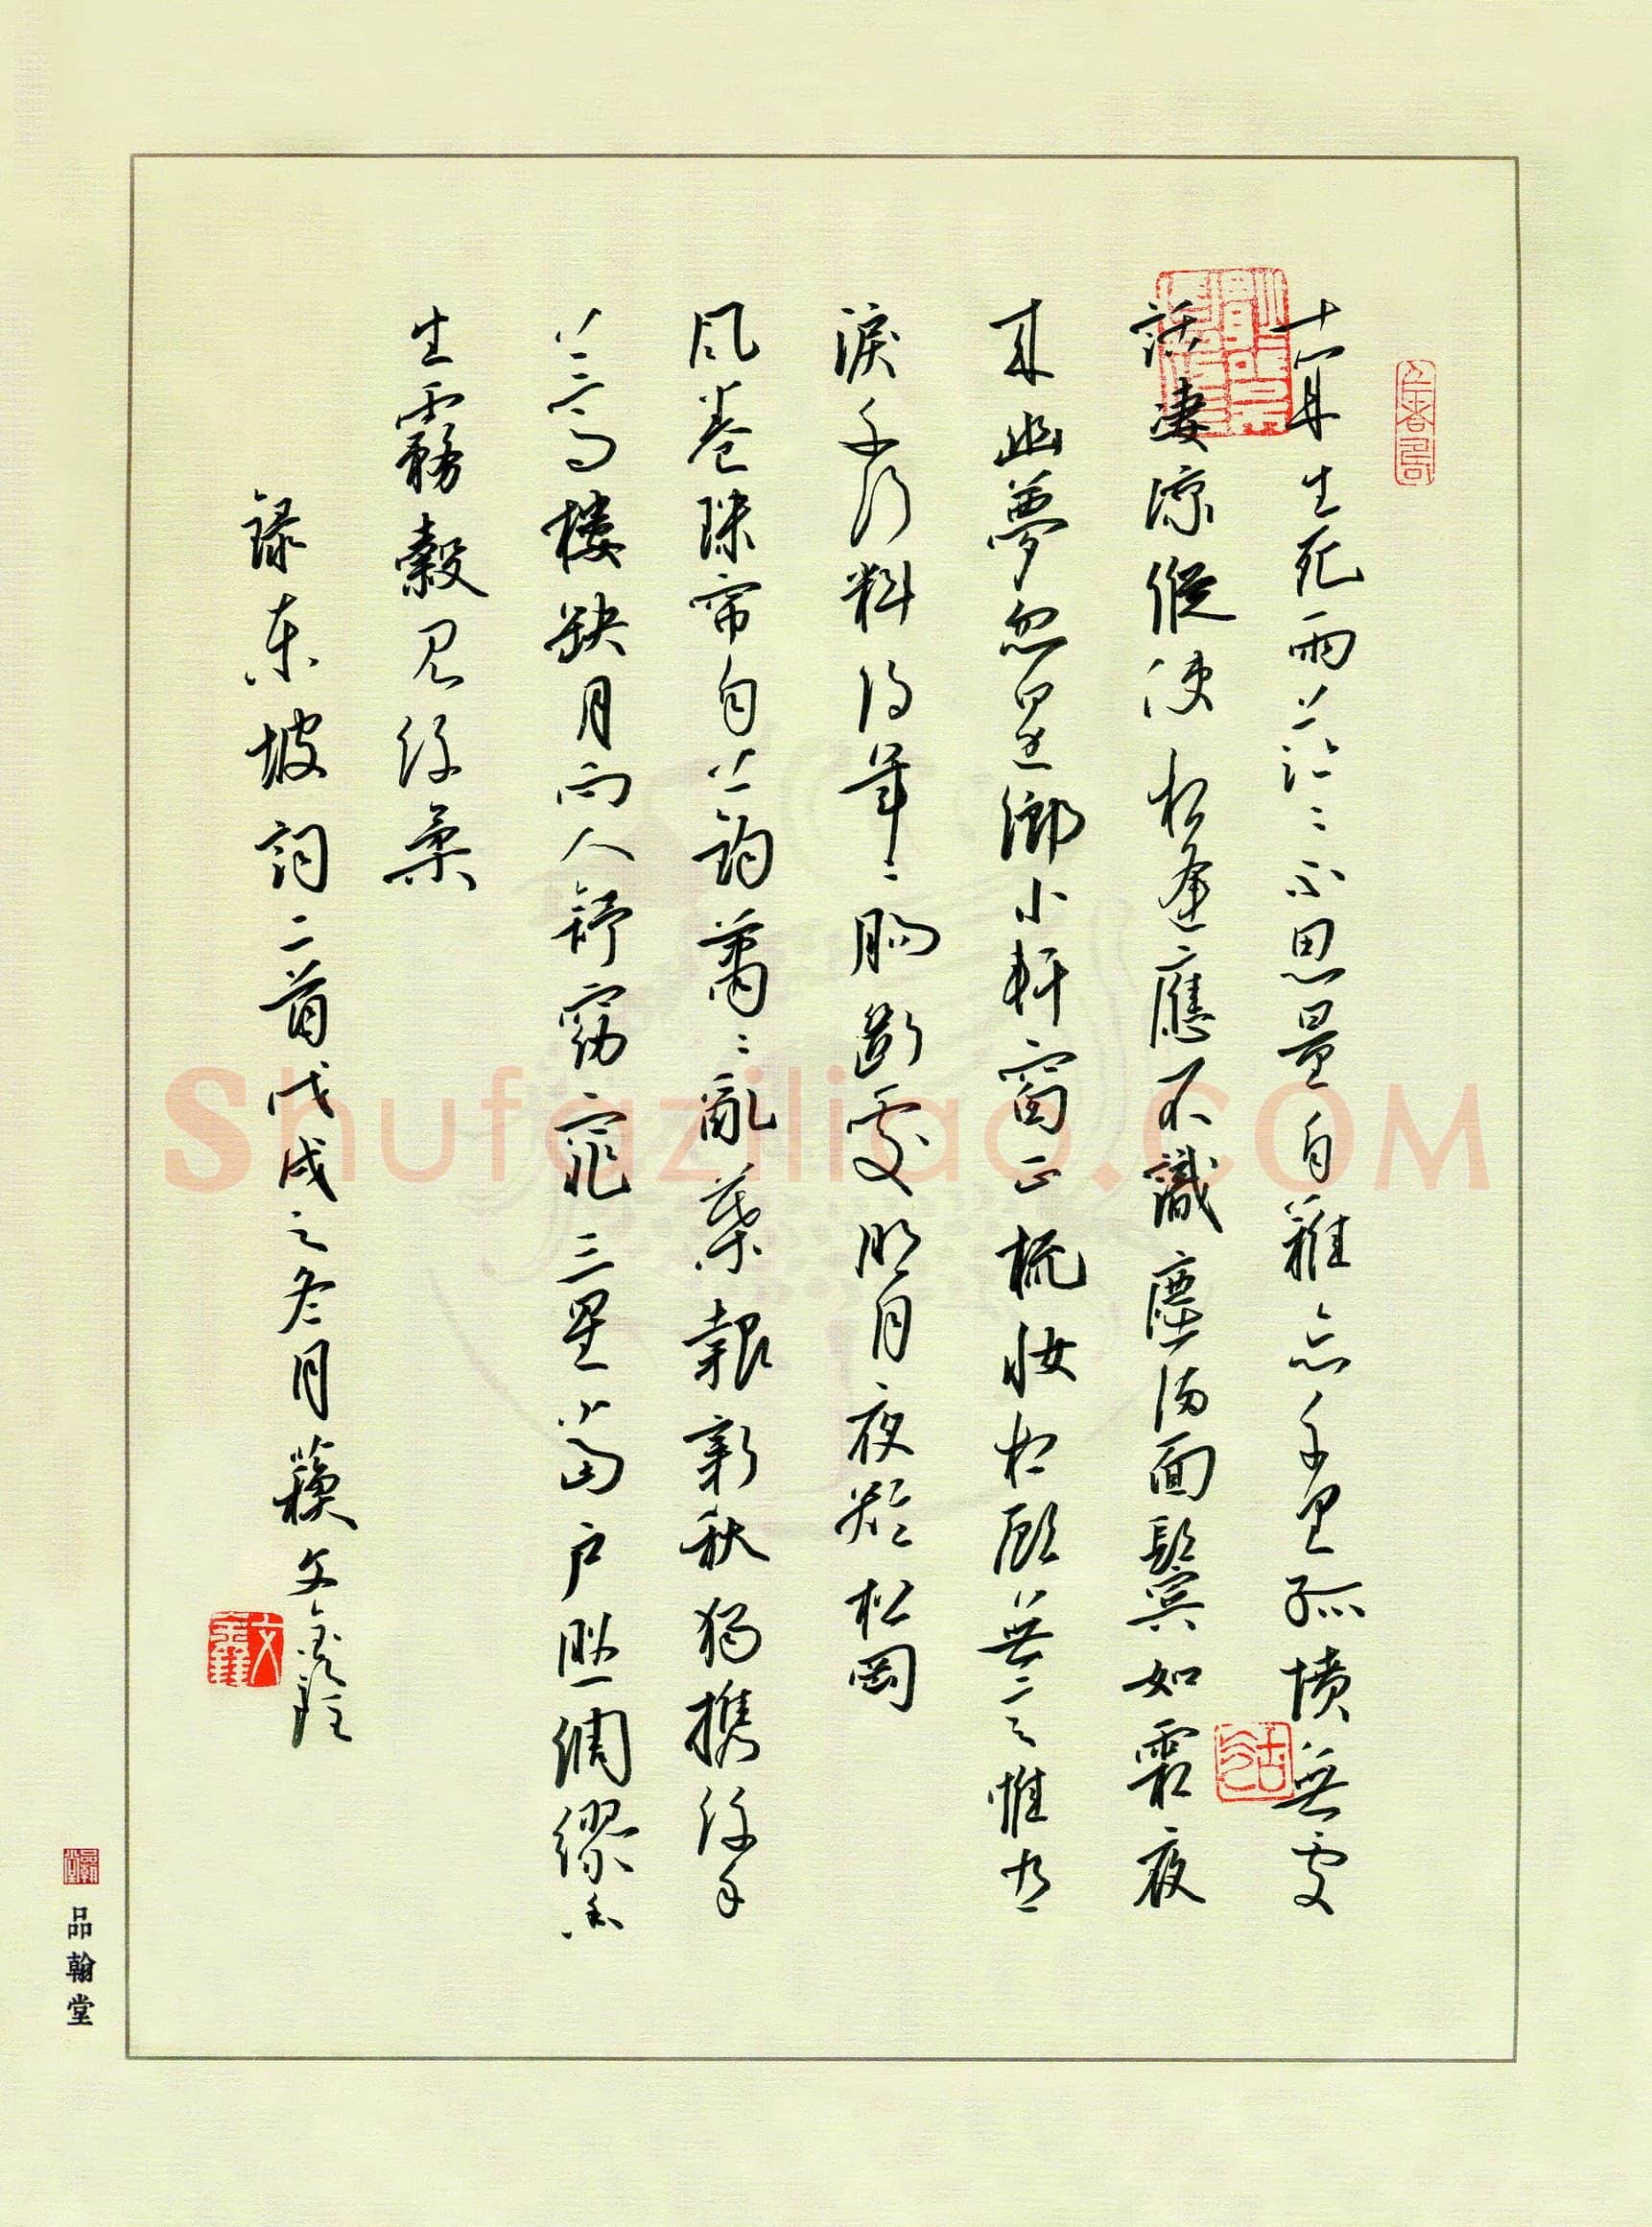 十年生死兩茫〻不思量自難忘千里孤墳無處
話凄涼縱使相逢應不識塵滿面鬢如霜夜
來幽夢忽還鄉小軒窗正梳妝相顧無言惟有
淚千行料得年〻腸斷處明月夜短松岡
風卷珠帘自上鈎蕭〻亂葉報新秋獨攜纖手
上高樓缺月向人舒窈窕三星當戶照綢繆香
生霧縠見纖柔
錄東坡詞二首戊戌之冬月文
品翰堂
Shufaziliao.COM